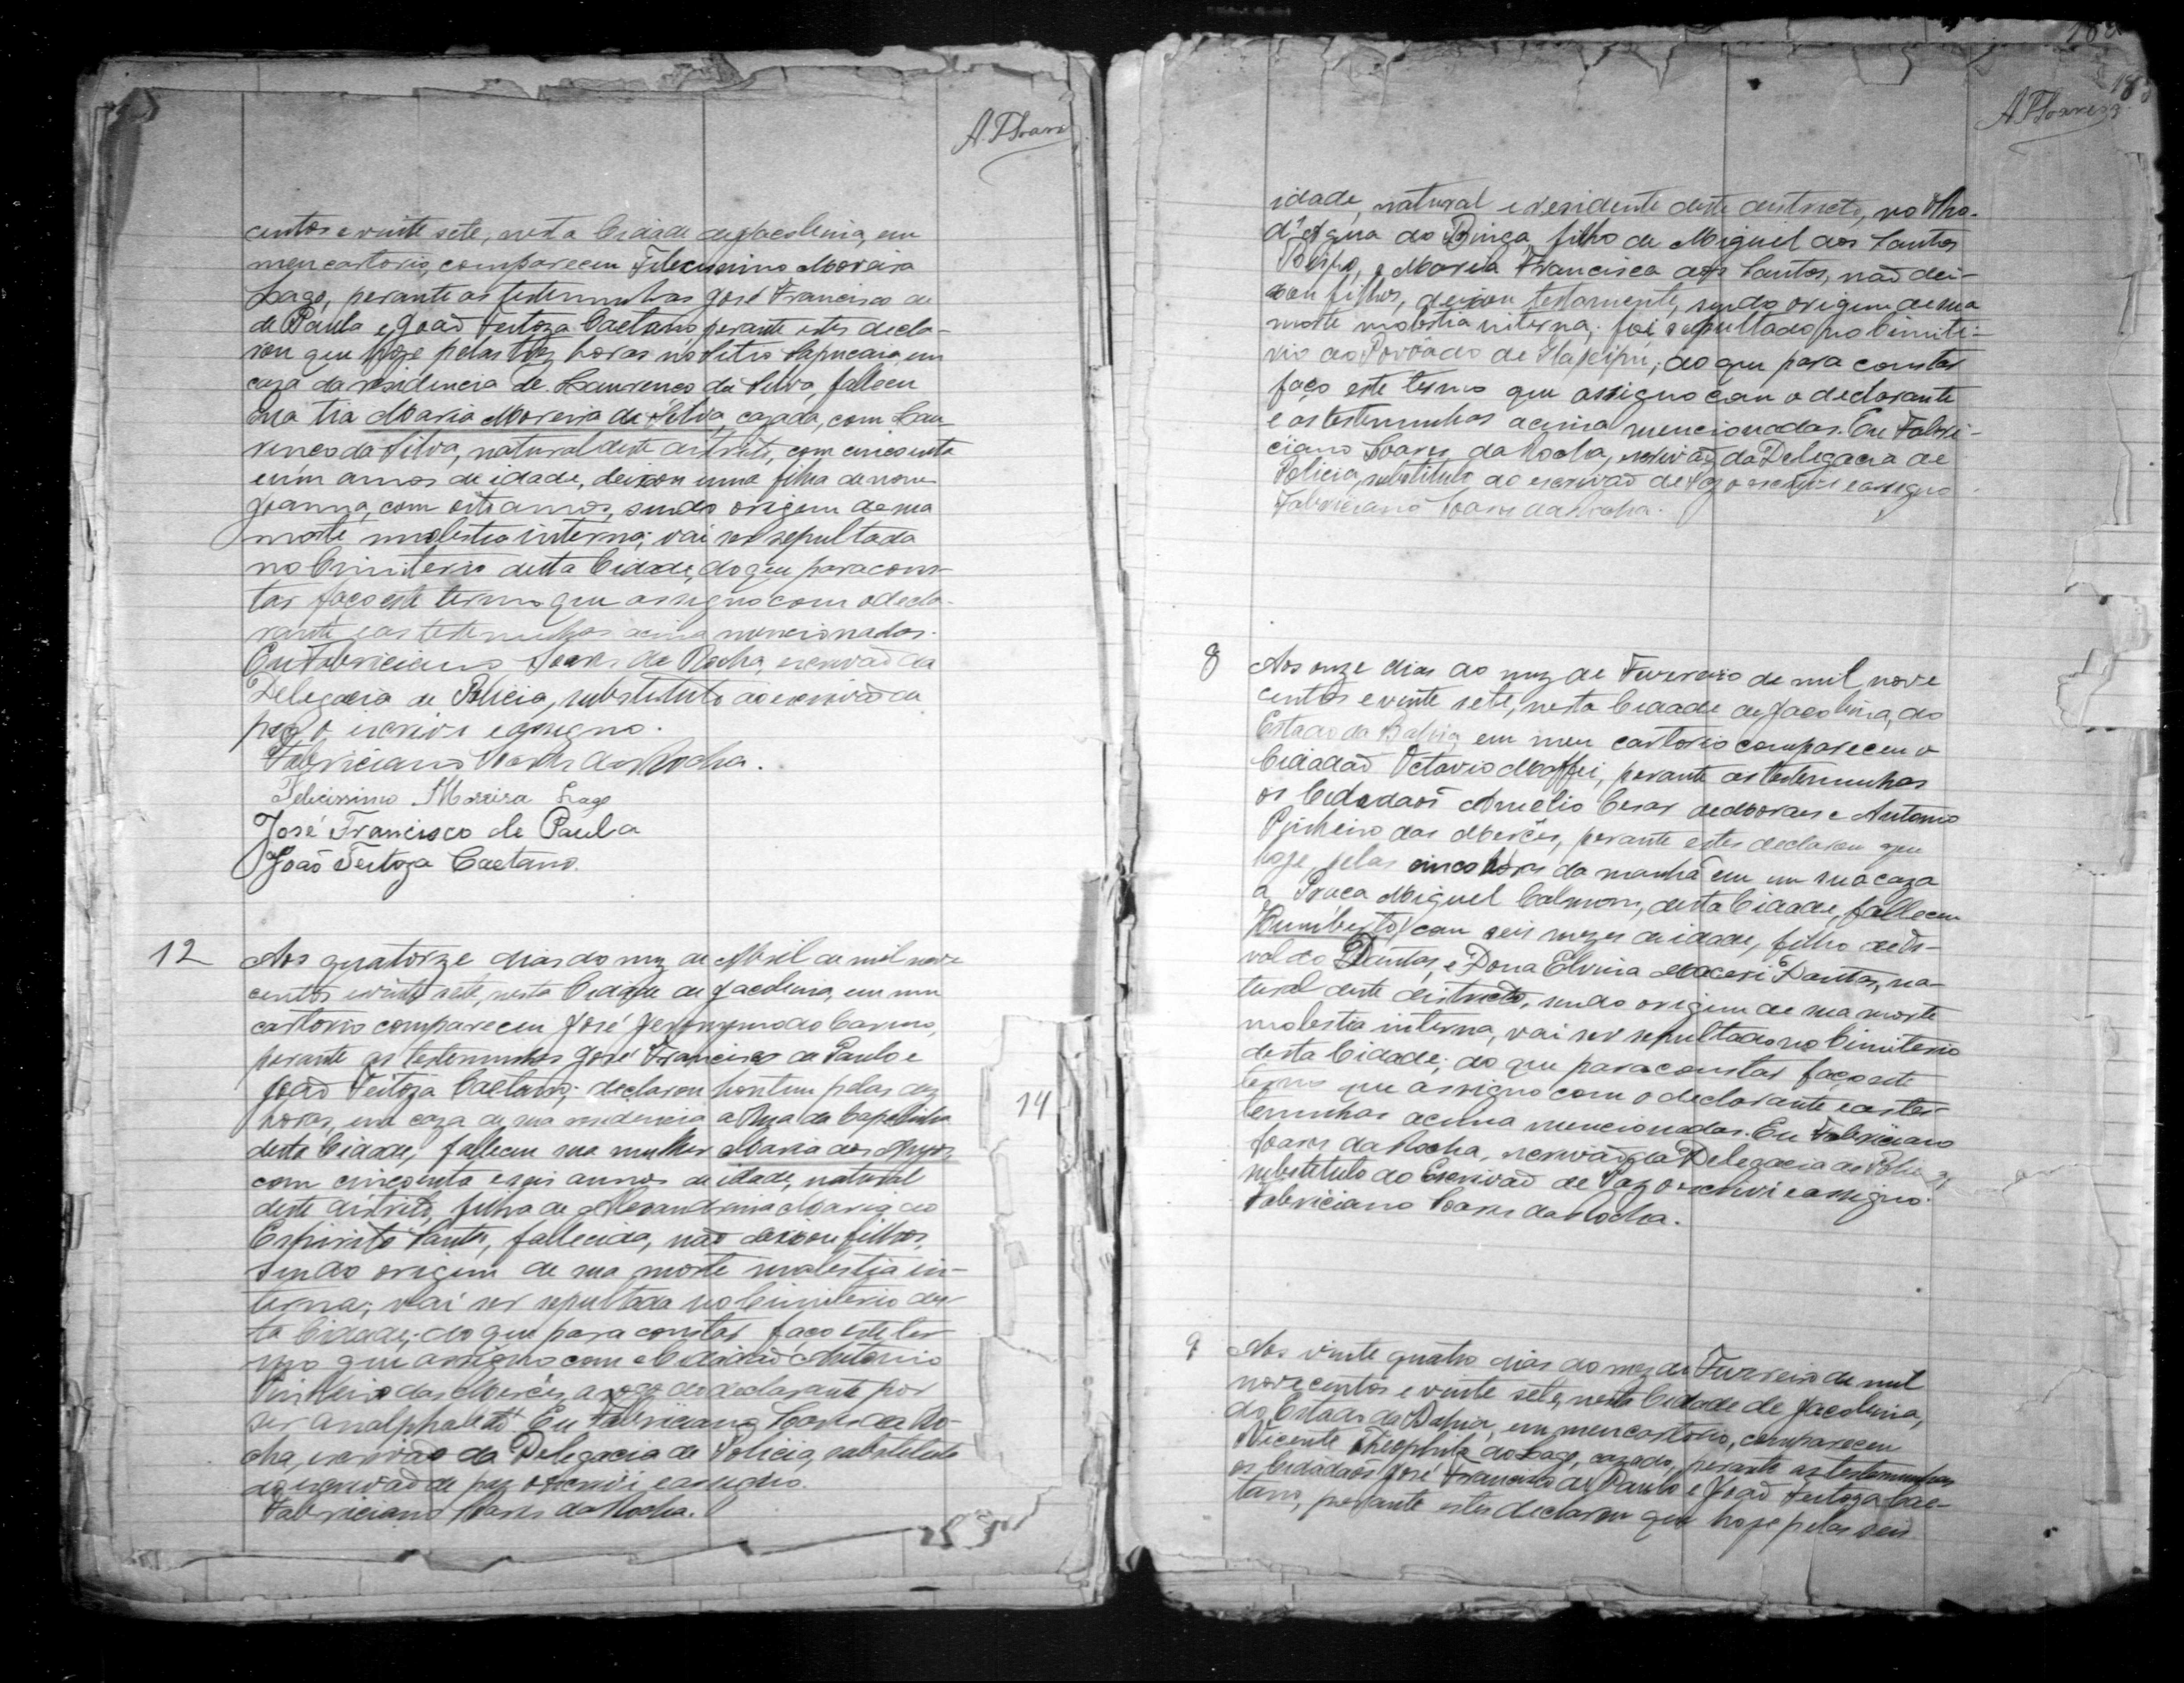 A. P. Soares
centos e vinte sete, nesta Cidade de Jacobina, em
meu cartorio, compareceu Felicissimo Moreira
Lago, perante as testemunhas José Francisco de
de Paula e João Feitoza Caetano, perante estes decla-
rou que hoje pelas tres horas no Sitio Sapucaia, em
caza da residencia de Laurenço da Silva, falleceu
sua tia Maria Moreira da Silva, cazada, com Lau-
renço da Silva, natural deste distrito, com cincoenta
e um annos de idade, deixou uma filha de nome
Joanna, com oito annos, sendo origem de sua
morte molestia interna; vai ser sepultada
no Cimiterio desta Cidade, do que para cons-
tar faço este termo que assigno com o decla-
rante e as testemunhas acima mencionadas.
Eu Fabriciano Soares da Rocha, escrivão da
Delegacia de Policia, substituto do escrivão de
paz o escrivi e assigno.
Fabriciano Soares da Rocha.
Felicissimo Moreira Lago
José Francisco de Paula
João Feitoza Caetano.
12 Aos quatorze dias do mez de Abril de mil nove
centos e vinte sete, nesta Cidade de Jacobina, em meu
cartorio compareceu José Jeronymo do Carmo,
perante as testemunhas José Francisco de Paula e
João Feitoza Caetano; declarou hontem pelas dez
horas, em caza de sua residencia a Rua da Capelinha
desta Cidade, falleceu sua mulher Maria dos Anjos
com cincoenta e seis annos de idade, natural
deste distrito, filha de Alexandrina Maria do
Espirito Santo, fallecida, não deixou filhos,
sendo origem de sua morte molestia in-
terna; vai ser sepultada no Cimiterio des-
ta Cidade; do que para constar faço este ter-
mo que assigno com o Cidadão Antonio
Pinheiro das Mercês, a rogo do declarante por
ser analphabeto. Eu Fabriciano Soares da Ro-
cha, escrivão da Delegacia de Policia, substituto
do escrivão de paz o escrivi e assigno.
Fabriciano Soares da Rocha.
14
A. P. Soares
idade, natural e residente deste destricto, no Olho-
d'Agua do , filho de Miguel dos Santos
, e Maria Francisca dos Santos, não dei-
xou filhos, deixou testamente, sendo origem de sua
morte molestia interna; foi sepultado no Cimite-
rio do Povôado de Itapeipú; do que para constar
faço este termo que assigno com o declarante
e as testemunhas acima mencionadas. Eu Fabri-
ciano Soares da Rocha, escrivão da Delegacia de
Policia, substituto do escrivão de Paz o escrivi e assigno
Fabriciano Soares da Rocha.
8 Aos onze dias do mez de Fevereiro de mil nove
centos e vinte sete, nesta Cidade de Jacobina, do
Estado da Bahia, em meu cartorio compareceu o
Cidadão Octavio Maffei, perante as testemunhas
os Cidadãos Amelio Cesar de Moraes e Antonio
Pinheiro das Mercês, perante estes declarou que
hoje pelas cinco horas da manhã em em sua caza
a Praça Miguel Calmon, desta Cidade, falleceu
Humberto, com seis mezes de idade, filho de Os-
valdo Dantas, e Dona Elvira Maceri Dantas, na-
tural deste districto, sendo origem de sua morte
molestia interna, vai ser sepultado no Cimiterio
desta Cidade; do que para constar faço este
termo que assigno com o declarante e as tes-
temunhas acima mencionadas. Eu Fabriciano
Soares da Rocha, escrivão da Delegacia de Policia,
substituto do Escrivão de Paz o escrivi e assigno.
Fabriciano Soares da Rocha.
9 Aos vinte quatro dias do mez de Fevereiro de mil
novecentos e vinte sete, nesta Cidade de Jacobina,
do Estado da Bahia, em meu cartorio, compareceu
Vicente Theophilo do Lago, cazado, perante as testemunhas
os Cidadãos José Francisco de Paula e João Feitoza Cae-
tano, perante estes declarou que hoje pelas seis